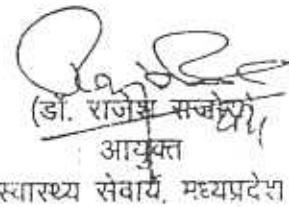 (डॉ. राजेश
आयुक्त
स्वास्थ्य सेवायें, मध्यप्रदेश